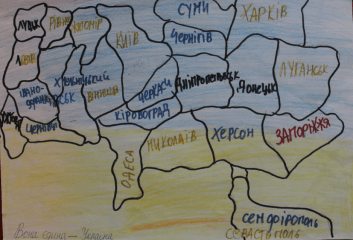 СУМИ
ХАРКІВ
ЛУЦЬК
РІВНЕ
ЖИТОМИР
КИЇВ
ЧЕРНІГІВ
ЛЬВІВ
ХМЕЛЬНИЦЬКИЙ
ВІННИЦЯ
ЧЕРКАСИ
ДНІПРОПЕТРОВСЬК
ДОНЕЦЬК
ЛУГАНСЬК
ІВАНО-
ФРАНКІВСЬК
КІРОВОГРАД
ЧЕРНІВЦІ
ОДЕСА
МИКОЛАЇВ
ХЕРСОН
ЗАПОРІЖЖЯ
СЕМФІРОПОЛЬ
СЕВАСТОПОЛЬ
Вона єдина — Україна